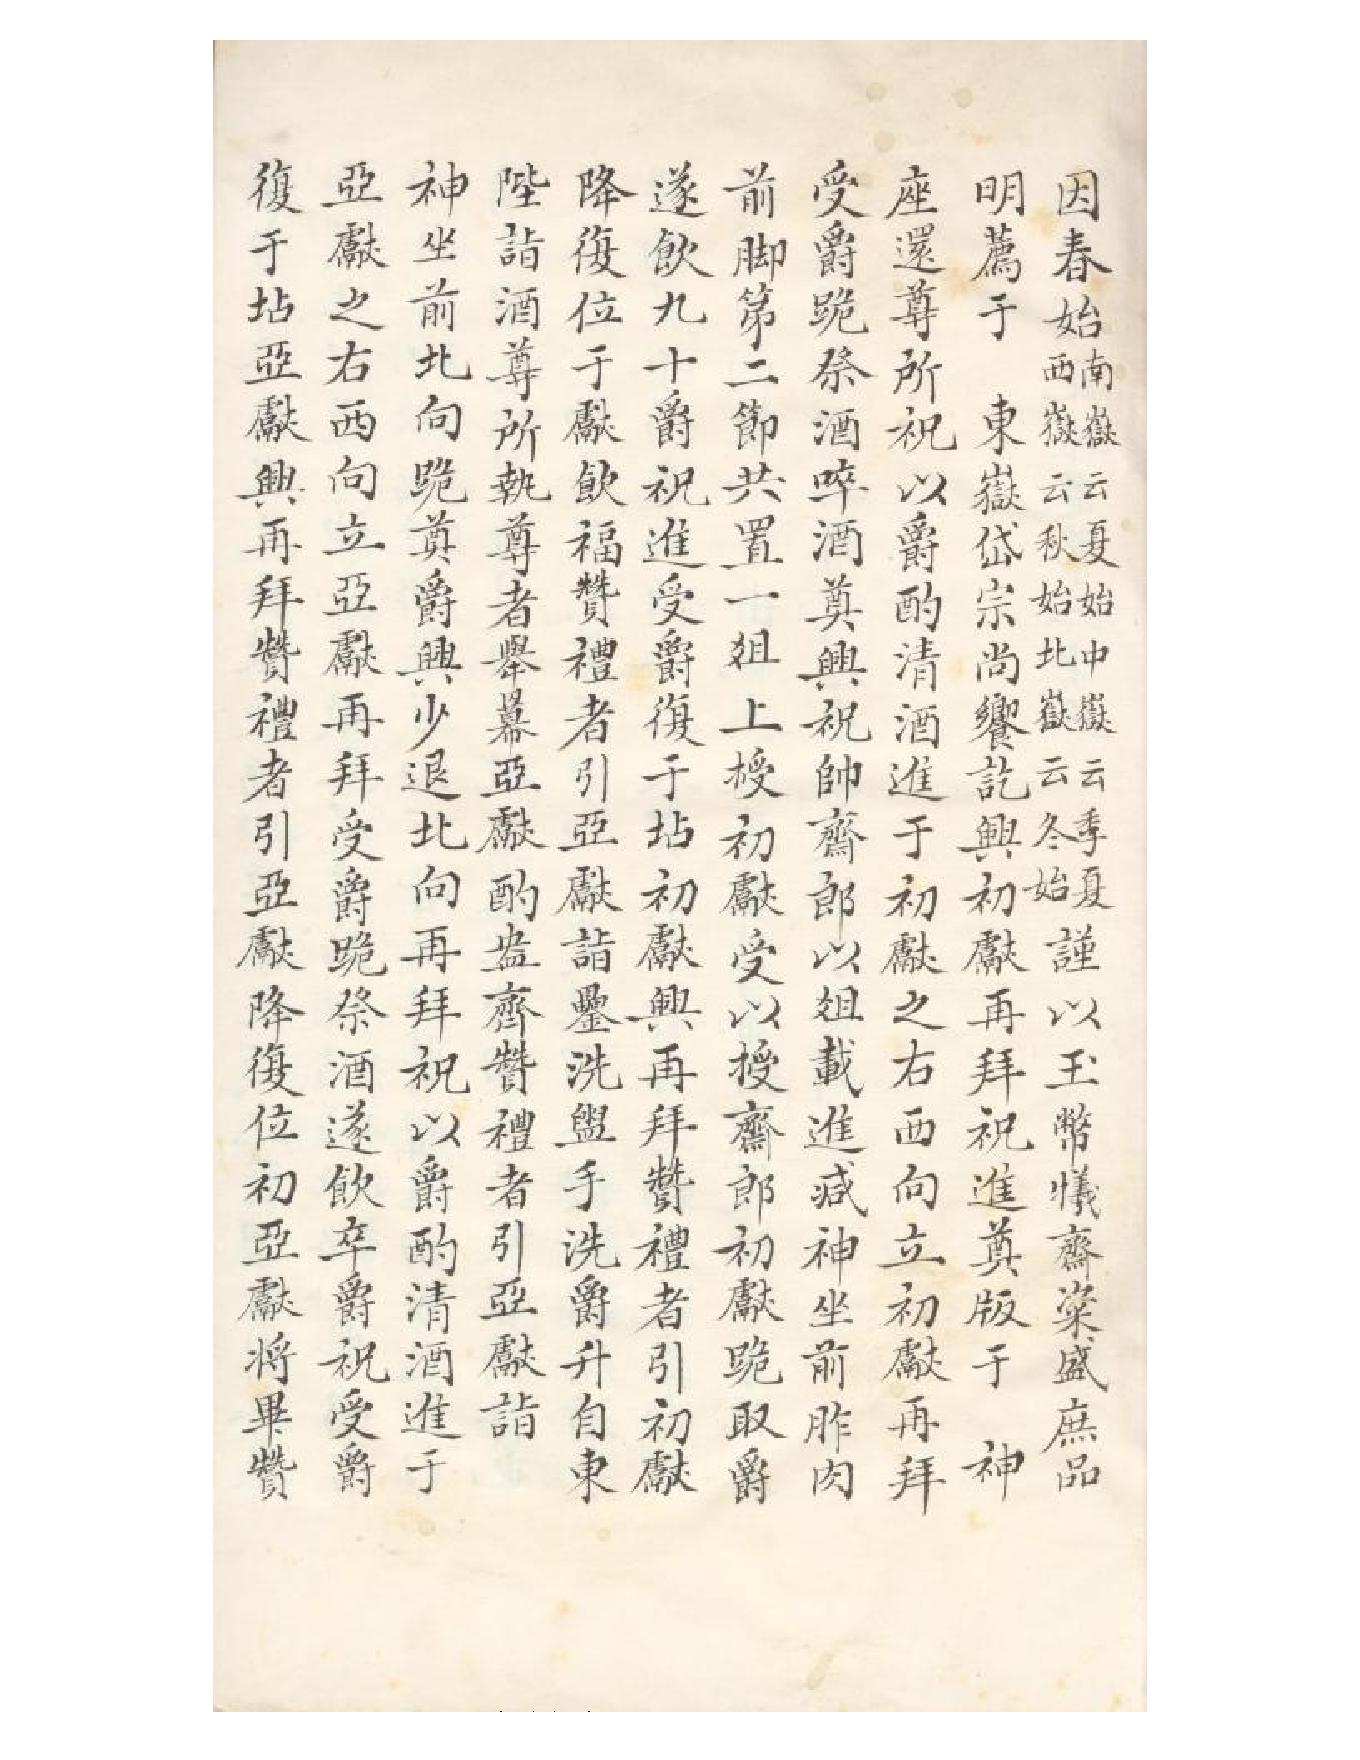 因春始南嶽云夏始中嶽云季夏西嶽云秋始北嶽云冬始謹以玉幣犠齋粢盛庶品
明薦于　東嶽岱宗尚饗訖興初獻再拜祝進奠版于　神
座還尊所祝以爵酌清酒進于初獻之右西向立初獻再拜
受爵跪祭酒啐酒奠興祝帥齋郎以俎載進减神坐前胙肉
前脚第二節共置一俎上授初獻受以授齋郎初獻跪取爵
遂飲九十爵祝進受爵復于坫初獻興再拜贊禮者引初獻
降復位于獻飲福贊禮者引亞獻詣罍洗盥手洗爵升自東
陛詣酒尊所執尊者舉幕亞獻酌盎齊贊禮者引亞獻詣
神坐前北向跪奠爵興少退北向再拜祝以爵酌清酒進于
亞獻之右西向立亞獻再拜受爵跪祭酒遂飲卒爵祝受爵
復于坫亞獻興再拜贊禮者引亞獻降復位初亞獻將畢贊